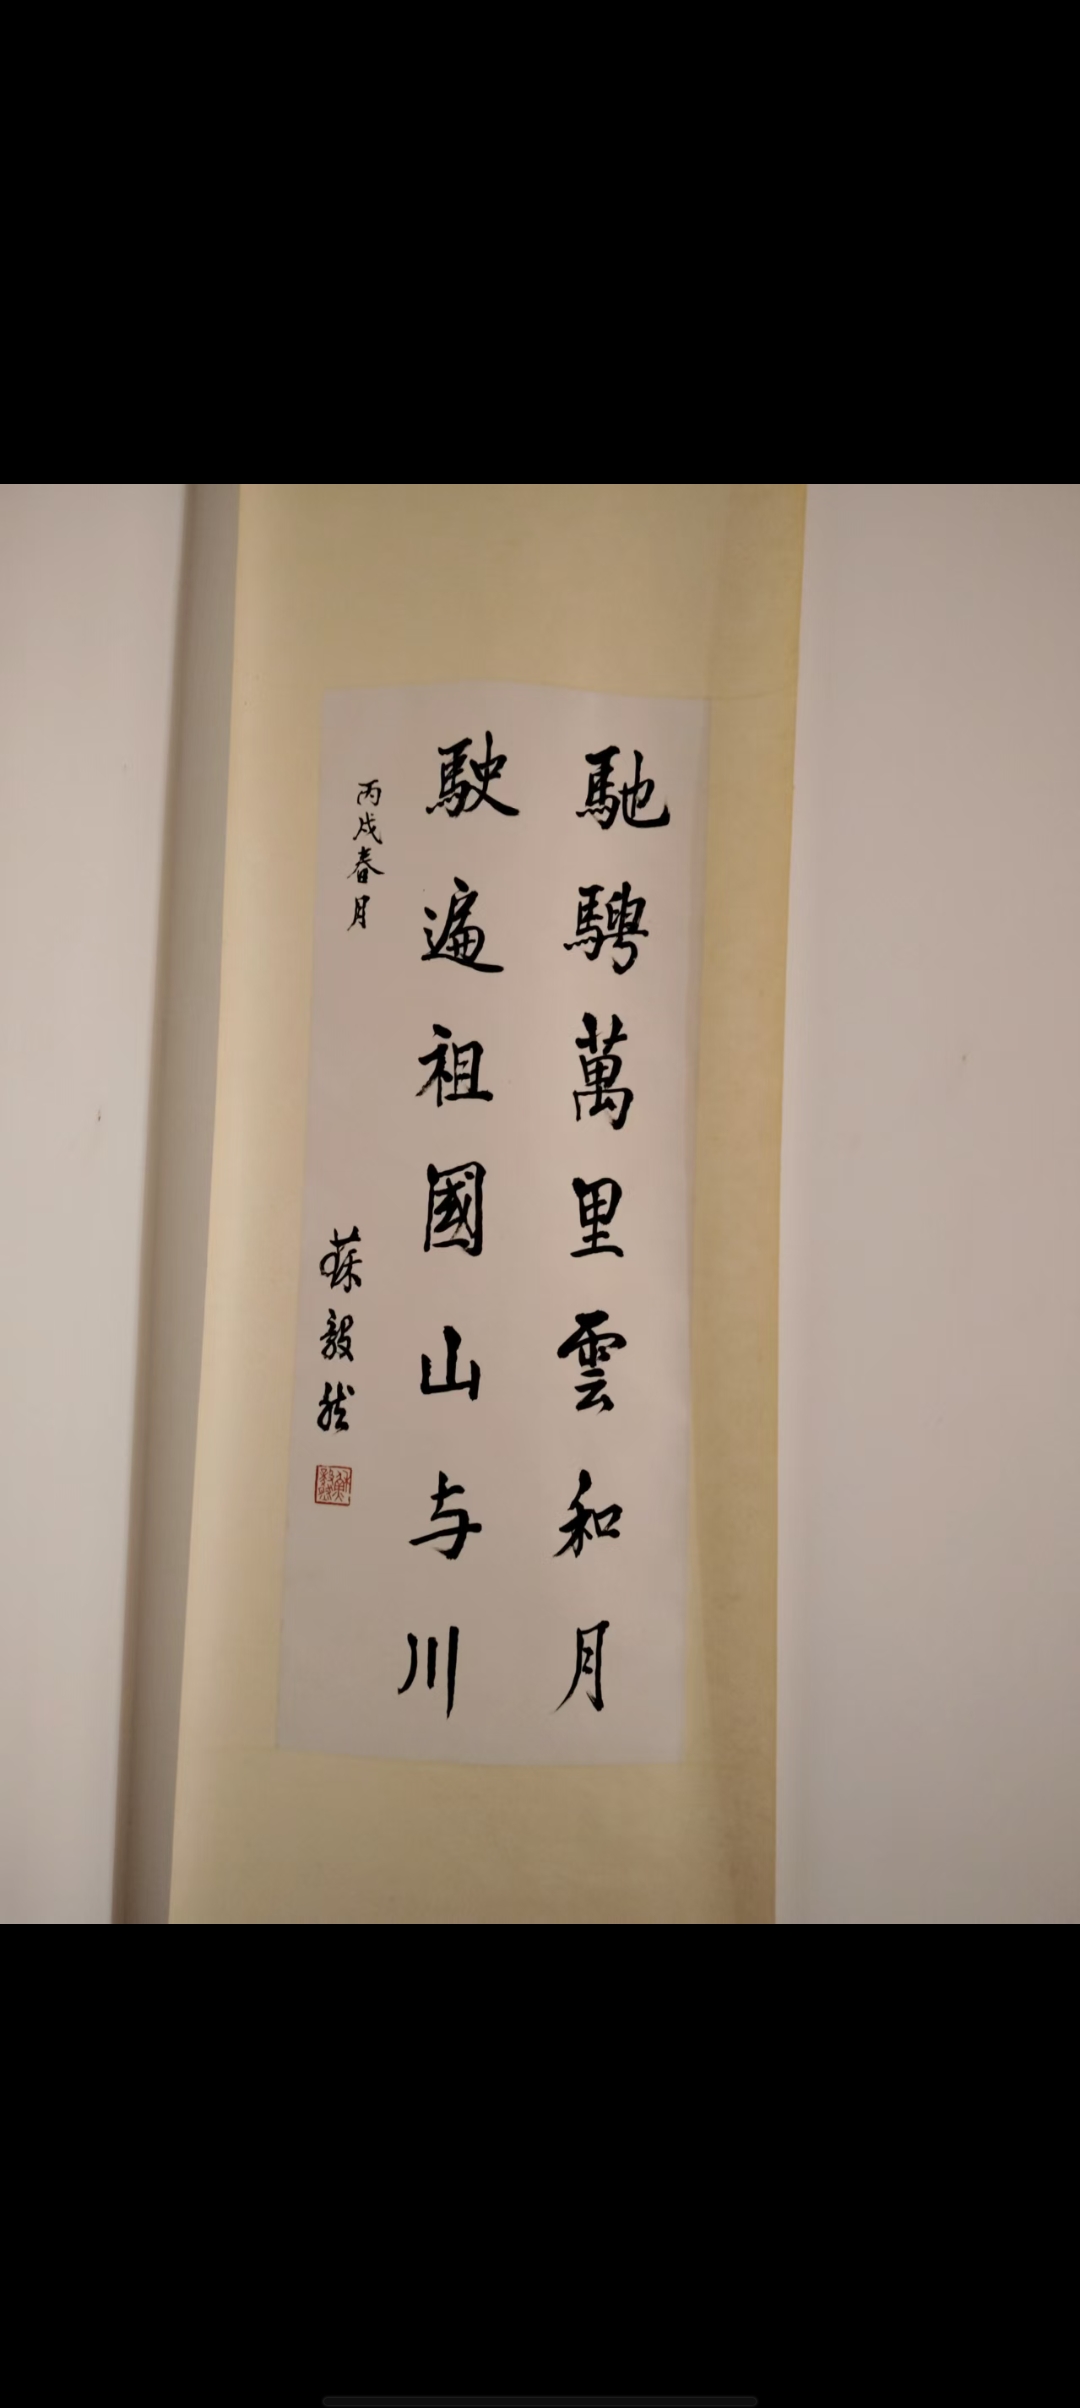 馳騁萬里雲和月
駛遍祖國山与川
丙戌春月
蘇毅然